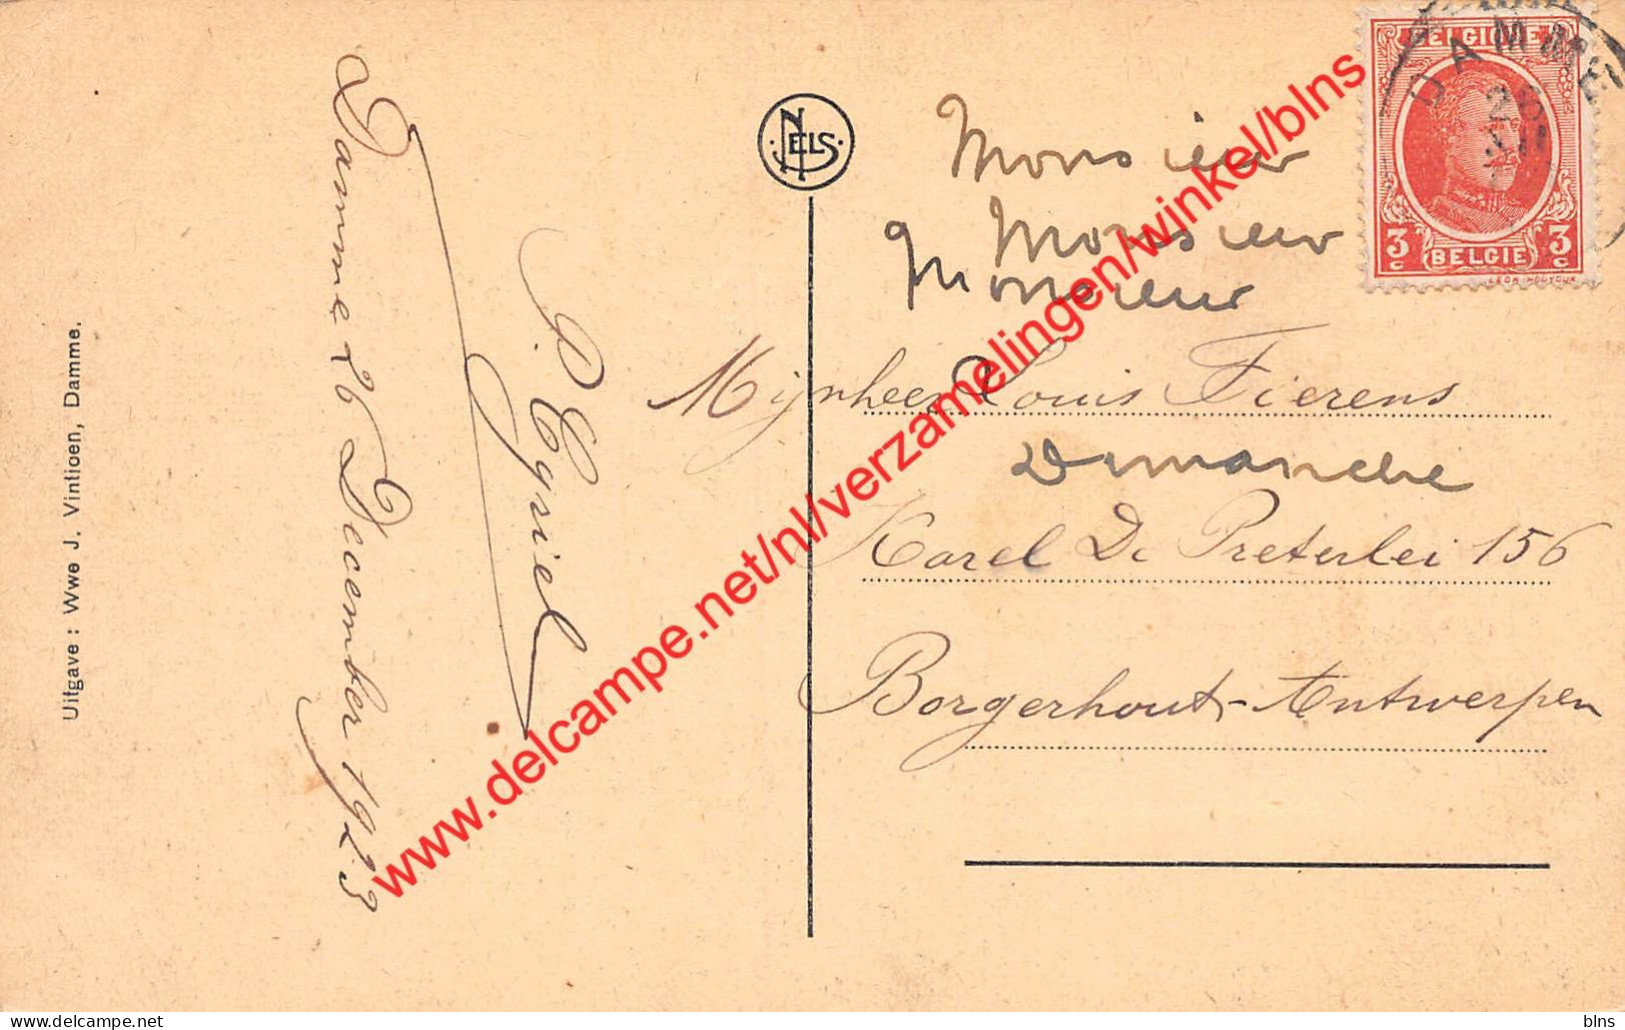 Uitgave : Wwe J. Vintioen, Damme.
Damme 26 December 1923
P. Cyriel
NELS
Monsieur
Monsieur
Monsieur
Mijnheer Louis Fierens
Dimanche
Karel De Preterlei 156
Borgerhout-Antwerpen
BELGIQUE
3c BELGIE 3c
DAMME
www.delcampe.net/nl/verzamelingen/winkel/blns
blns